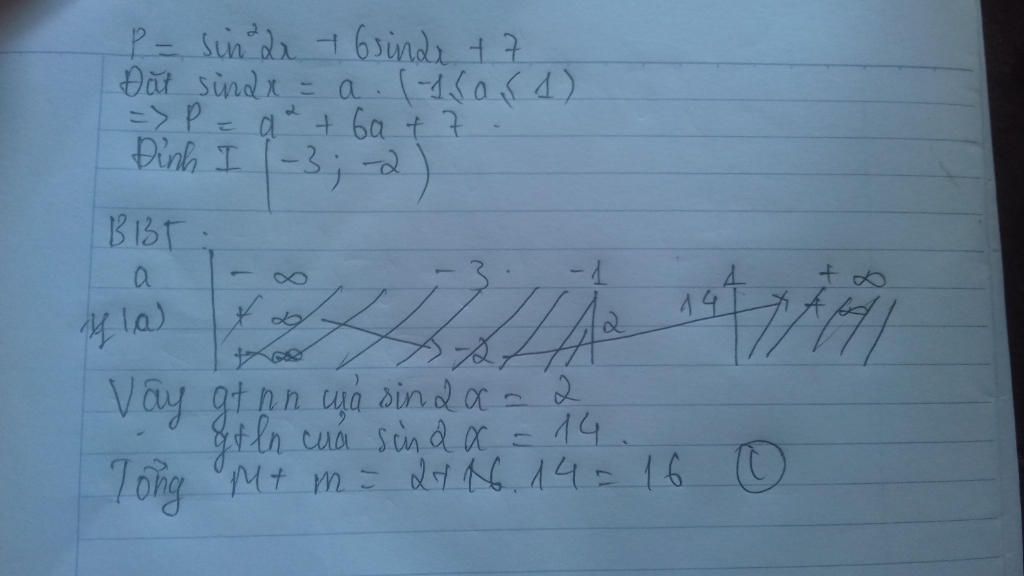 P = sin²2x + 6sin2x + 7
Đặt sin2x = a . (-1 ≤ a ≤ 1)
=> P = a² + 6a + 7 .
Đỉnh I (-3 ; -2)
BBT :
a - ∞ - 3 . -1 1 + ∞
y(a) + ∞ 2 14 + ∞
+ ∞ -2
Vậy gtnn của sin2x = 2
gtln của sin2x = 14 .
Tổng M + m = 2 + 14 = 16 C